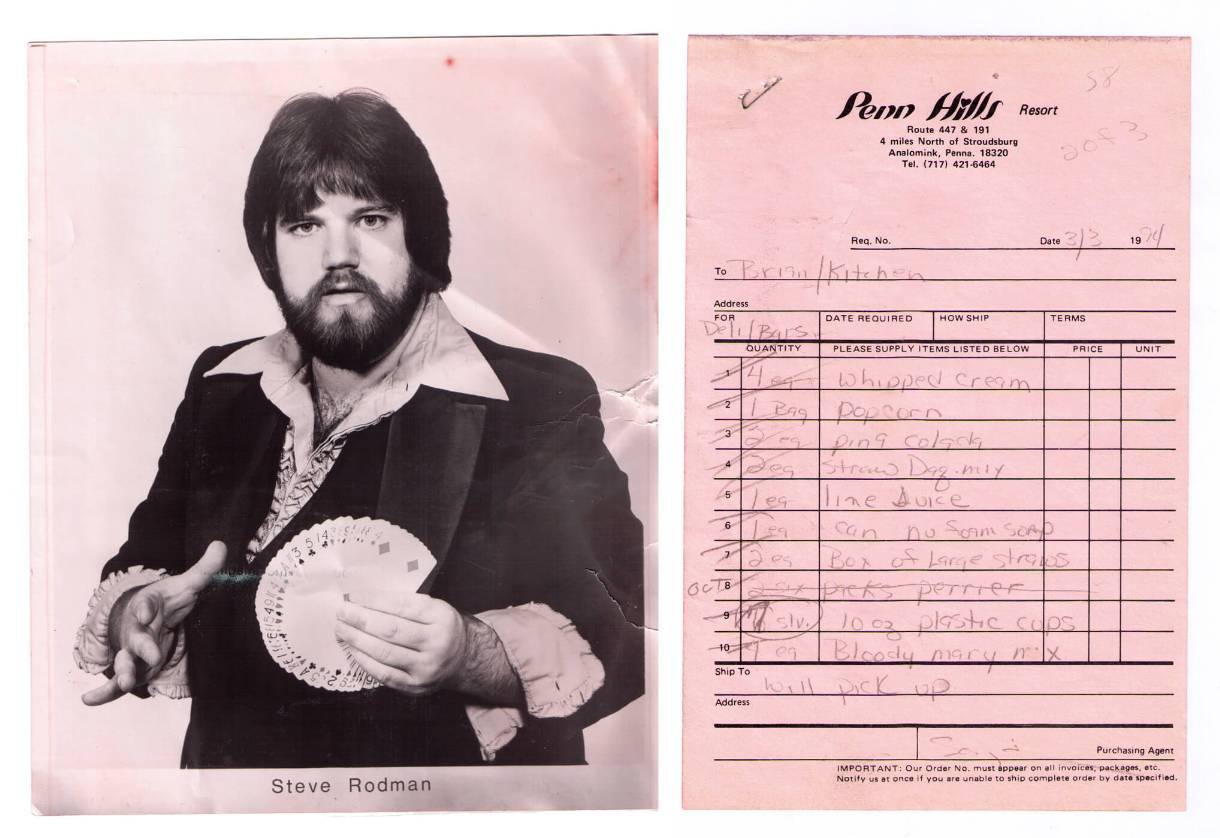 Steve Rodman
58
Penn Hills Resort
2 of 3
Route 447 & 191
4 miles North of Stroudsburg
Analomink, Penna. 18320
Tel. (717) 421-6464
Req. No. Date 3/3 1994
To Brian/Kitchen
Address
FOR DATE REQUIRED HOW SHIP TERMS
Deli/Bars
QUANTITY PLEASE SUPPLY ITEMS LISTED BELOW PRICE UNIT
1 4 ea whipped cream
2 1 Bag popcorn
3 2 ea pina colada
4 2 ea straw Daq. mix
5 1 ea lime Juice
6 1 ea can no foam soap
7 2 ea Box of Large straws
8 picks perrier
9 slv. 10 oz plastic cups
10 ea Bloody mary mix
Ship To
will pick up
Address
Purchasing Agent
IMPORTANT: Our Order No. must appear on all invoices, packages, etc.
Notify us at once if you are unable to ship complete order by date specified.